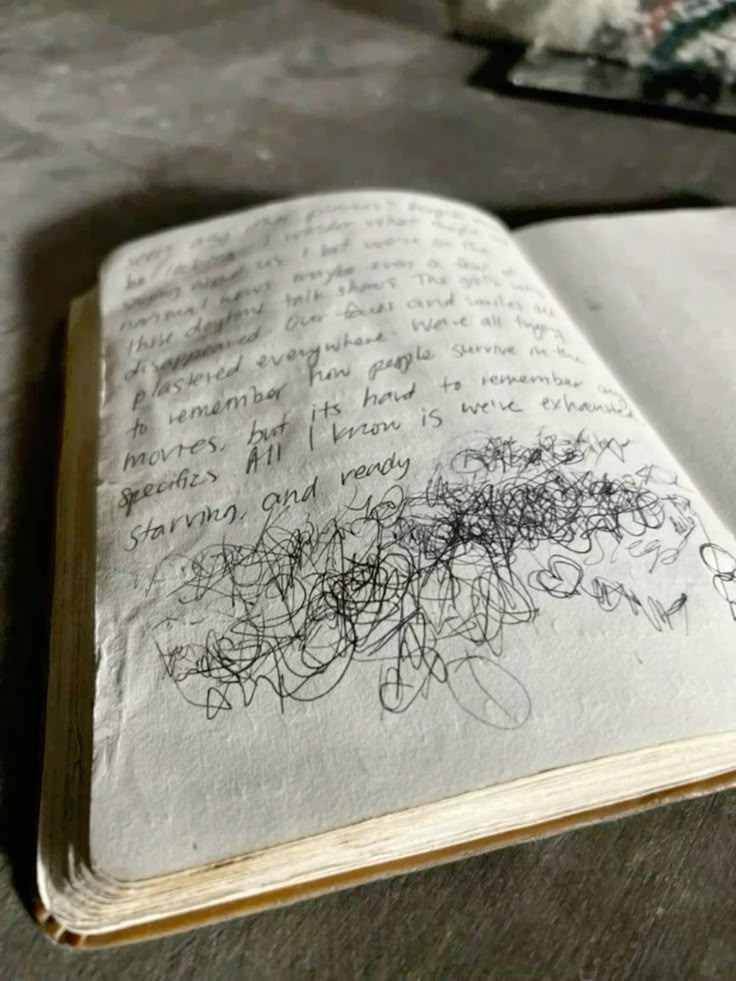 be looking. I wonder what people are
saying about us. I bet we're on the
normal news maybe even a few of
those daytime talk shows. The girls who
disappeared. Our faces and smiles are
plastered everywhere. We're all trying
to remember how people survive in the
movies, but its hard to remember any
specifics All I know is we're exhausted
starving, and ready